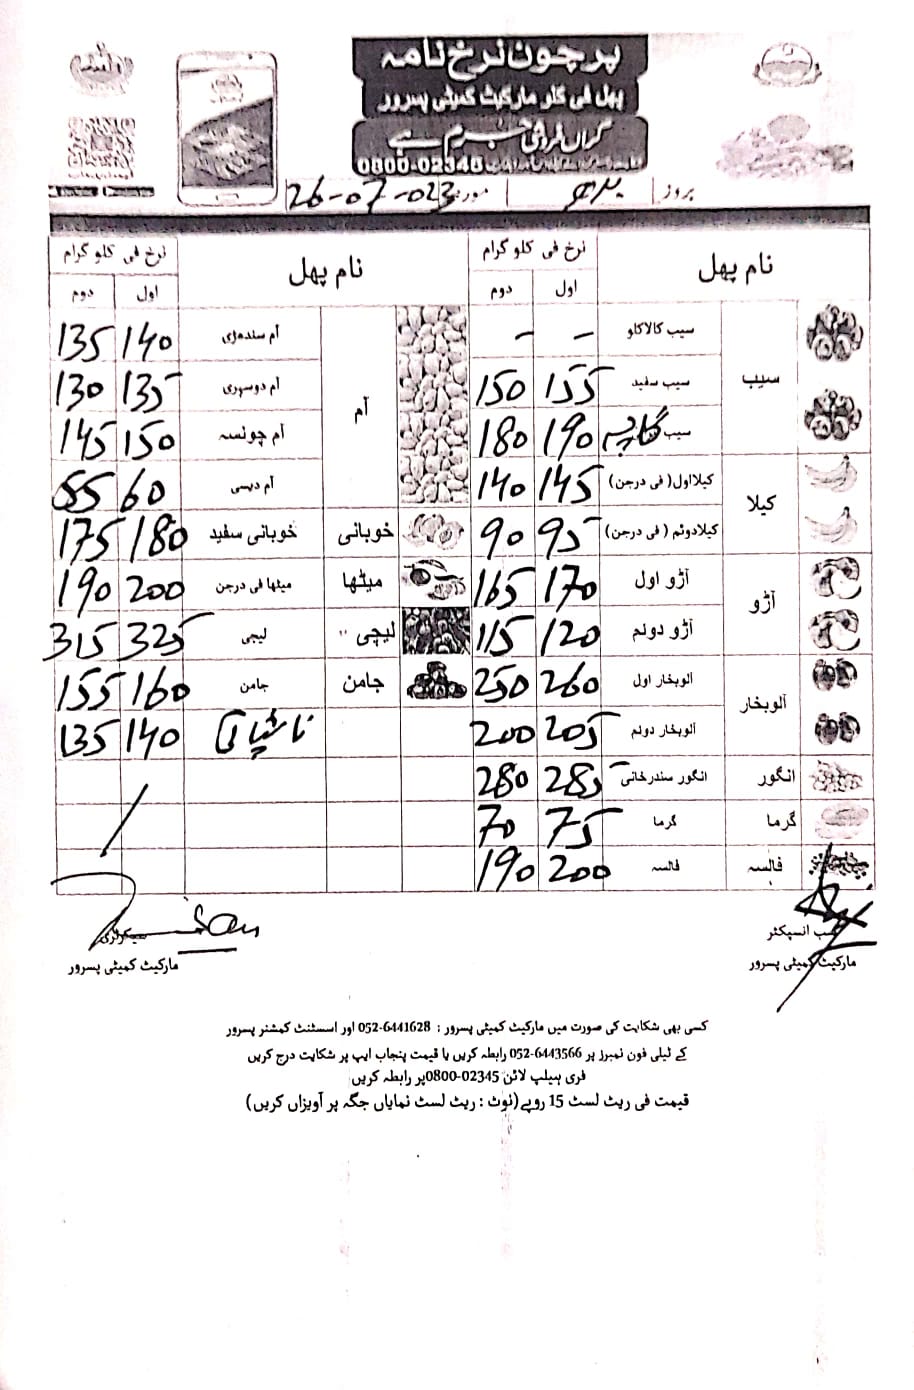 پرچون نرخ نامہ
پھل فی کلو مارکیٹ کمیٹی پسرور
گراں فروشی جرم ہے
0800-02345
بروز
مورخہ 26-07-023
نام پھل نرخ فی کلو گرام نام پھل نرخ فی کلو گرام
اول دوم اول دوم
سیب سیب کالاکلو - - آم آم سندھڑی 140 135
سیب سفید 155 150 آم دوسہری 135 130
سیب گاچہ 190 180 آم چونسہ 150 145
کیلا کیلا اول (فی درجن) 145 140 آم دیسی 60 55
کیلادوئم (فی درجن) 95 90 خوبانی خوبانی سفید 180 175
آڑو آڑو اول 170 165 میٹھا میٹھا فی درجن 200 190
آڑو دوئم 120 115 لیچی لیچی 325 315
آلوبخار الوبخار اول 260 250 جامن جامن 160 155
الوبخار دوئم 205 200 ناشپاتی 140 135
انگور انگور سندرخانی 285 280
گرما گرما 75 70
فالسہ فالسہ 200 190
سب انسپکٹر
مارکیٹ کمیٹی پسرور
سیکرٹری
مارکیٹ کمیٹی پسرور
کسی بھی شکایت کی صورت میں مارکیٹ کمیٹی پسرور : 052-6441628 اور اسسٹنٹ کمشنر پسرور
کے ٹیلی فون نمبرز پر 052-6443566 رابطہ کریں یا قیمت پنجاب ایپ پر شکایت درج کریں
فری ہیلپ لائن 0800-02345پر رابطہ کریں
قیمت فی ریٹ لسٹ 15 روپے(نوٹ : ریٹ لسٹ نمایاں جگہ پر آویزاں کریں)